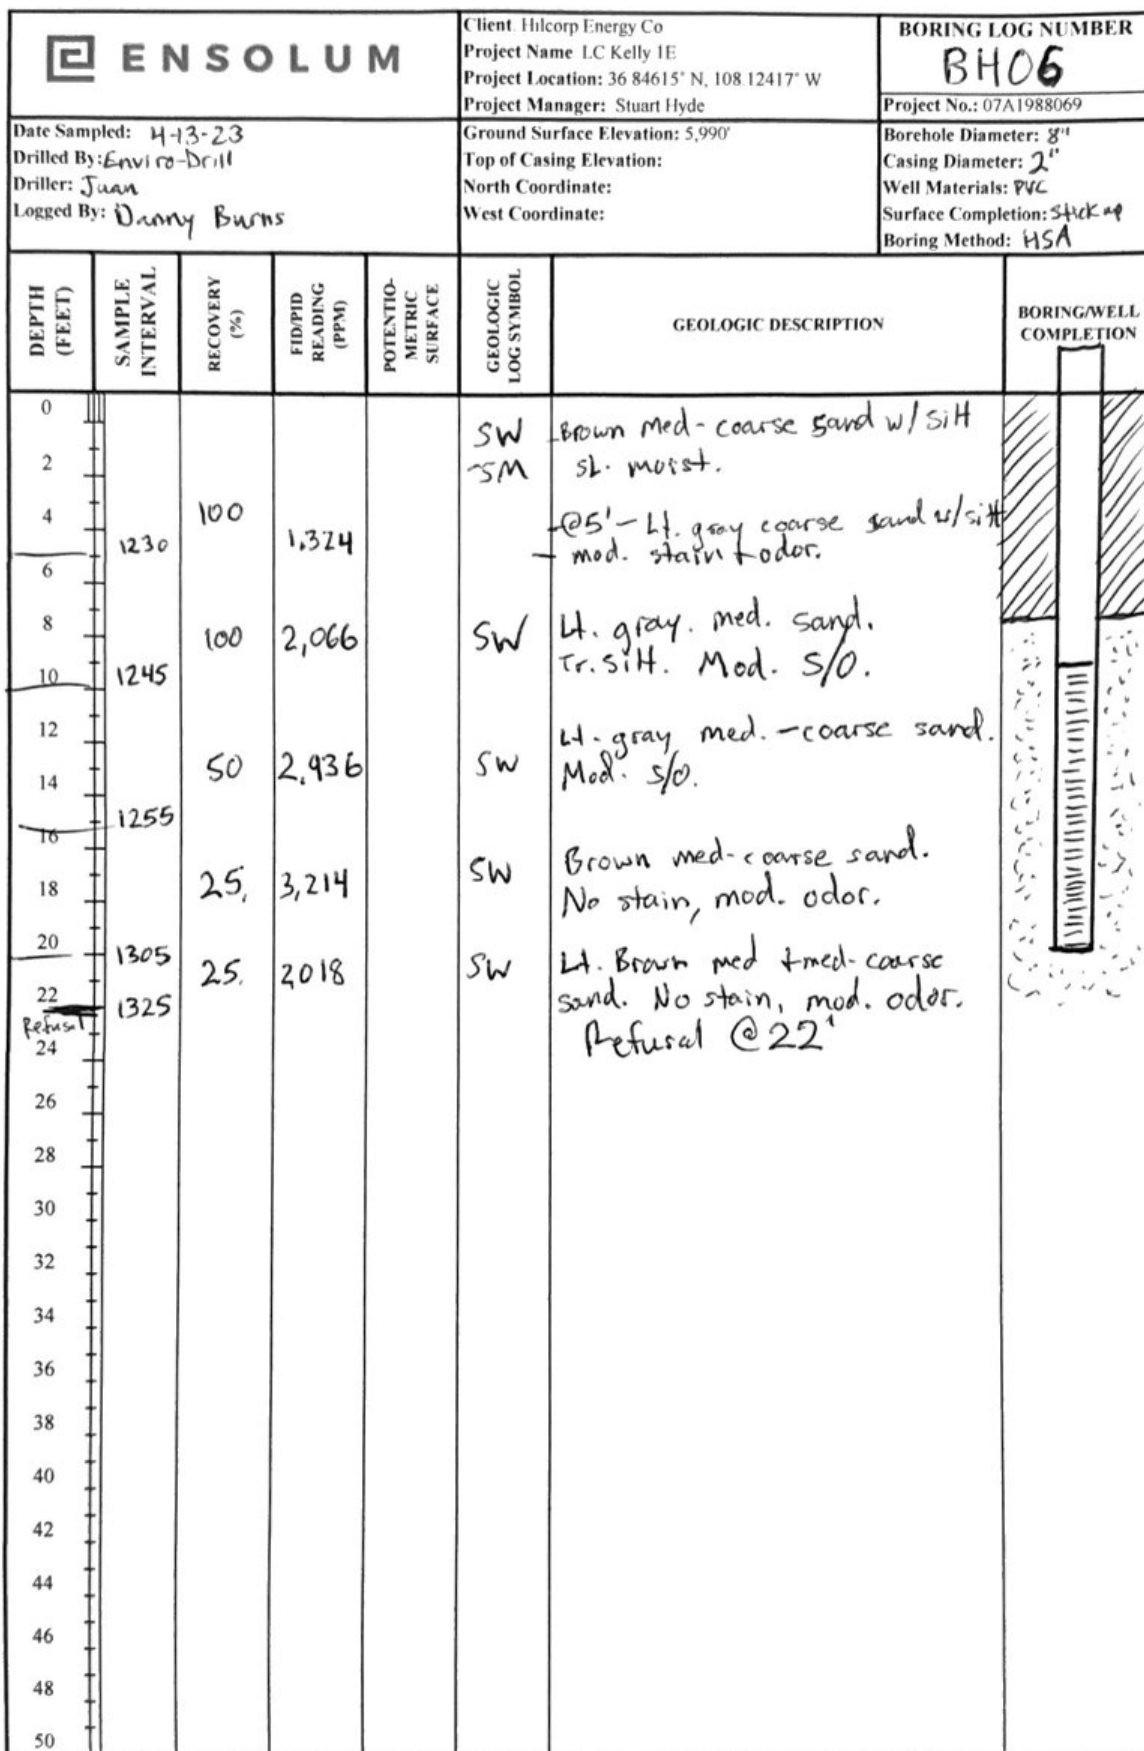 ENSOLUM
Client Hilcorp Energy Co
Project Name LC Kelly 1E
Project Location: 36 84615° N, 108 12417° W
Project Manager: Stuart Hyde
BORING LOG NUMBER
BH06
Project No.: 07A1988069
Date Sampled: 4-13-23
Drilled By: Enviro-Drill
Driller: Juan
Logged By: Danny Burns
Ground Surface Elevation: 5,990'
Top of Casing Elevation:
North Coordinate:
West Coordinate:
Borehole Diameter: 8"
Casing Diameter: 2"
Well Materials: PVC
Surface Completion: Stick up
Boring Method: HSA
DEPTH
(FEET)
SAMPLE
INTERVAL
RECOVERY
(%)
FID/PID
READING
(PPM)
POTENTIO-
METRIC
SURFACE
GEOLOGIC
LOG SYMBOL
GEOLOGIC DESCRIPTION
BORING/WELL
COMPLETION
0
SW Brown med-coarse sand w/ silt
2 -SM sl. moist.
4 100 @5'- Lt. gray coarse sand w/ silt
1230 1,324 - mod. stain + odor.
6
8 100 2,066 SW Lt. gray. med. sand.
10 1245 Tr. silt. Mod. S/O.
12 Lt. gray med.-coarse sand.
14 50 2,936 SW Mod. S/O.
16 1255
18 25. 3,214 SW Brown med-coarse sand.
No stain, mod. odor.
20 1305 25. 2018 SW Lt. Brown med + med-coarse
22 1325 sand. No stain, mod. odor.
Refusal Refusal @ 22'
24
26
28
30
32
34
36
38
40
42
44
46
48
50